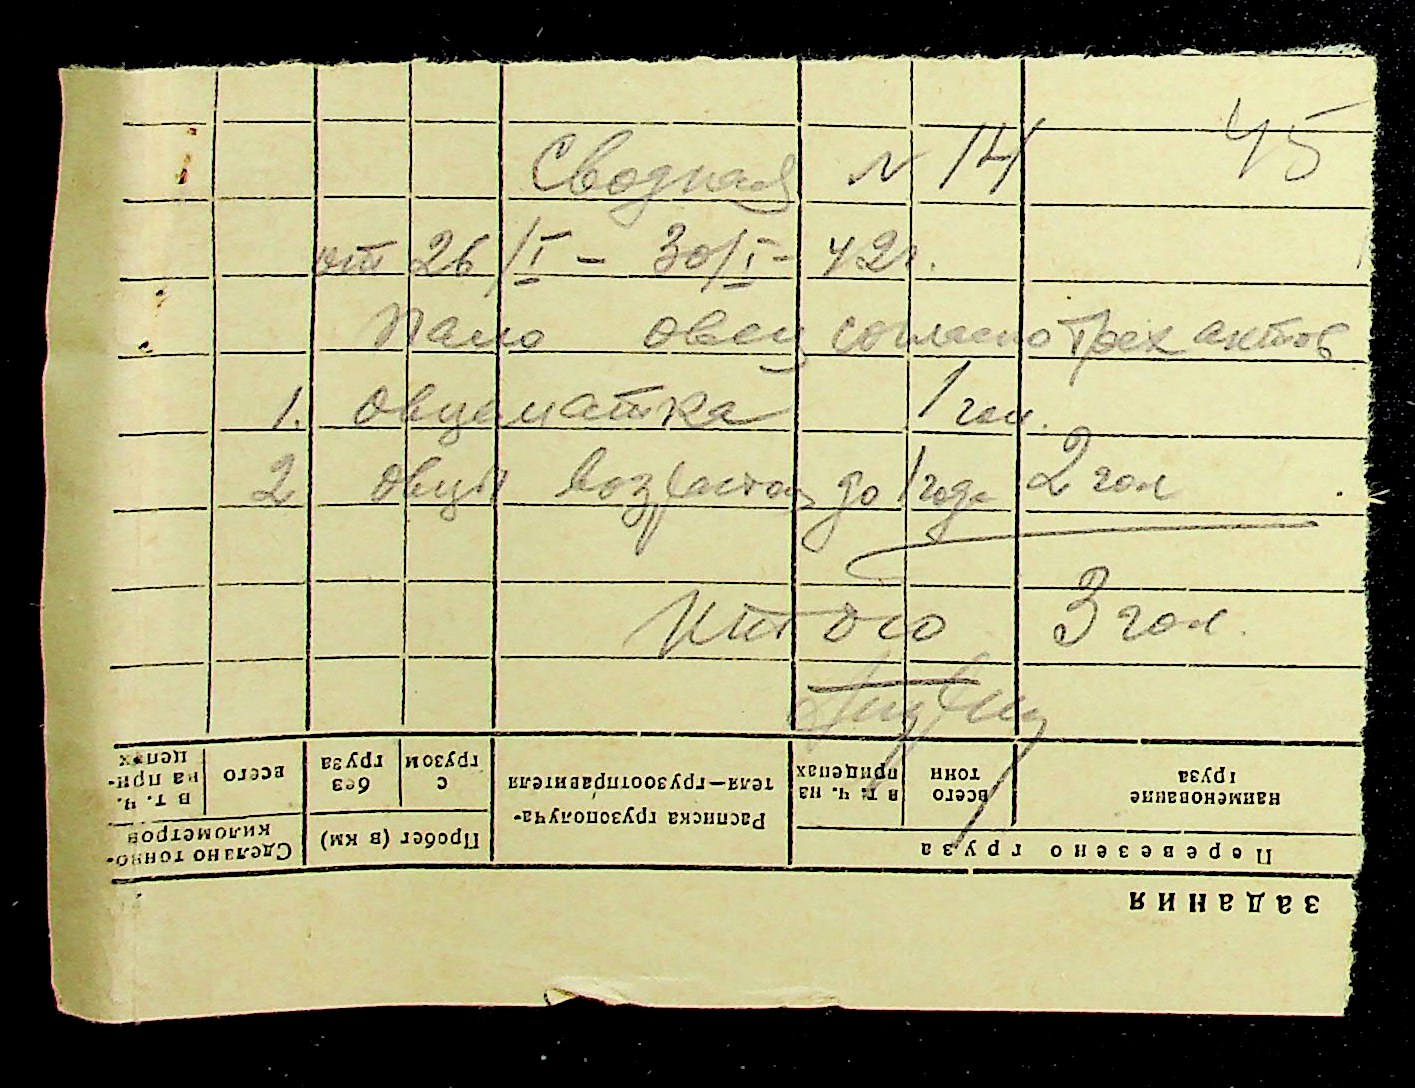 45
Сводная N 14
от 26/I - 30/I - 42г.
Пало овец согласно трех актов
1. Овцематка 1 гол.
2 овцы возрастом до 1 года 2 гол
Итого 3 гол.
задания
Перевезено груза
наименование груза
всего тонн
в т. ч. на прицепах
Расписка грузополуча-
теля—грузоотправителя
Пробег (в км)
с грузом
без груза
Сделано тонно-
километров
всего
в т. ч.
на при-
цепах